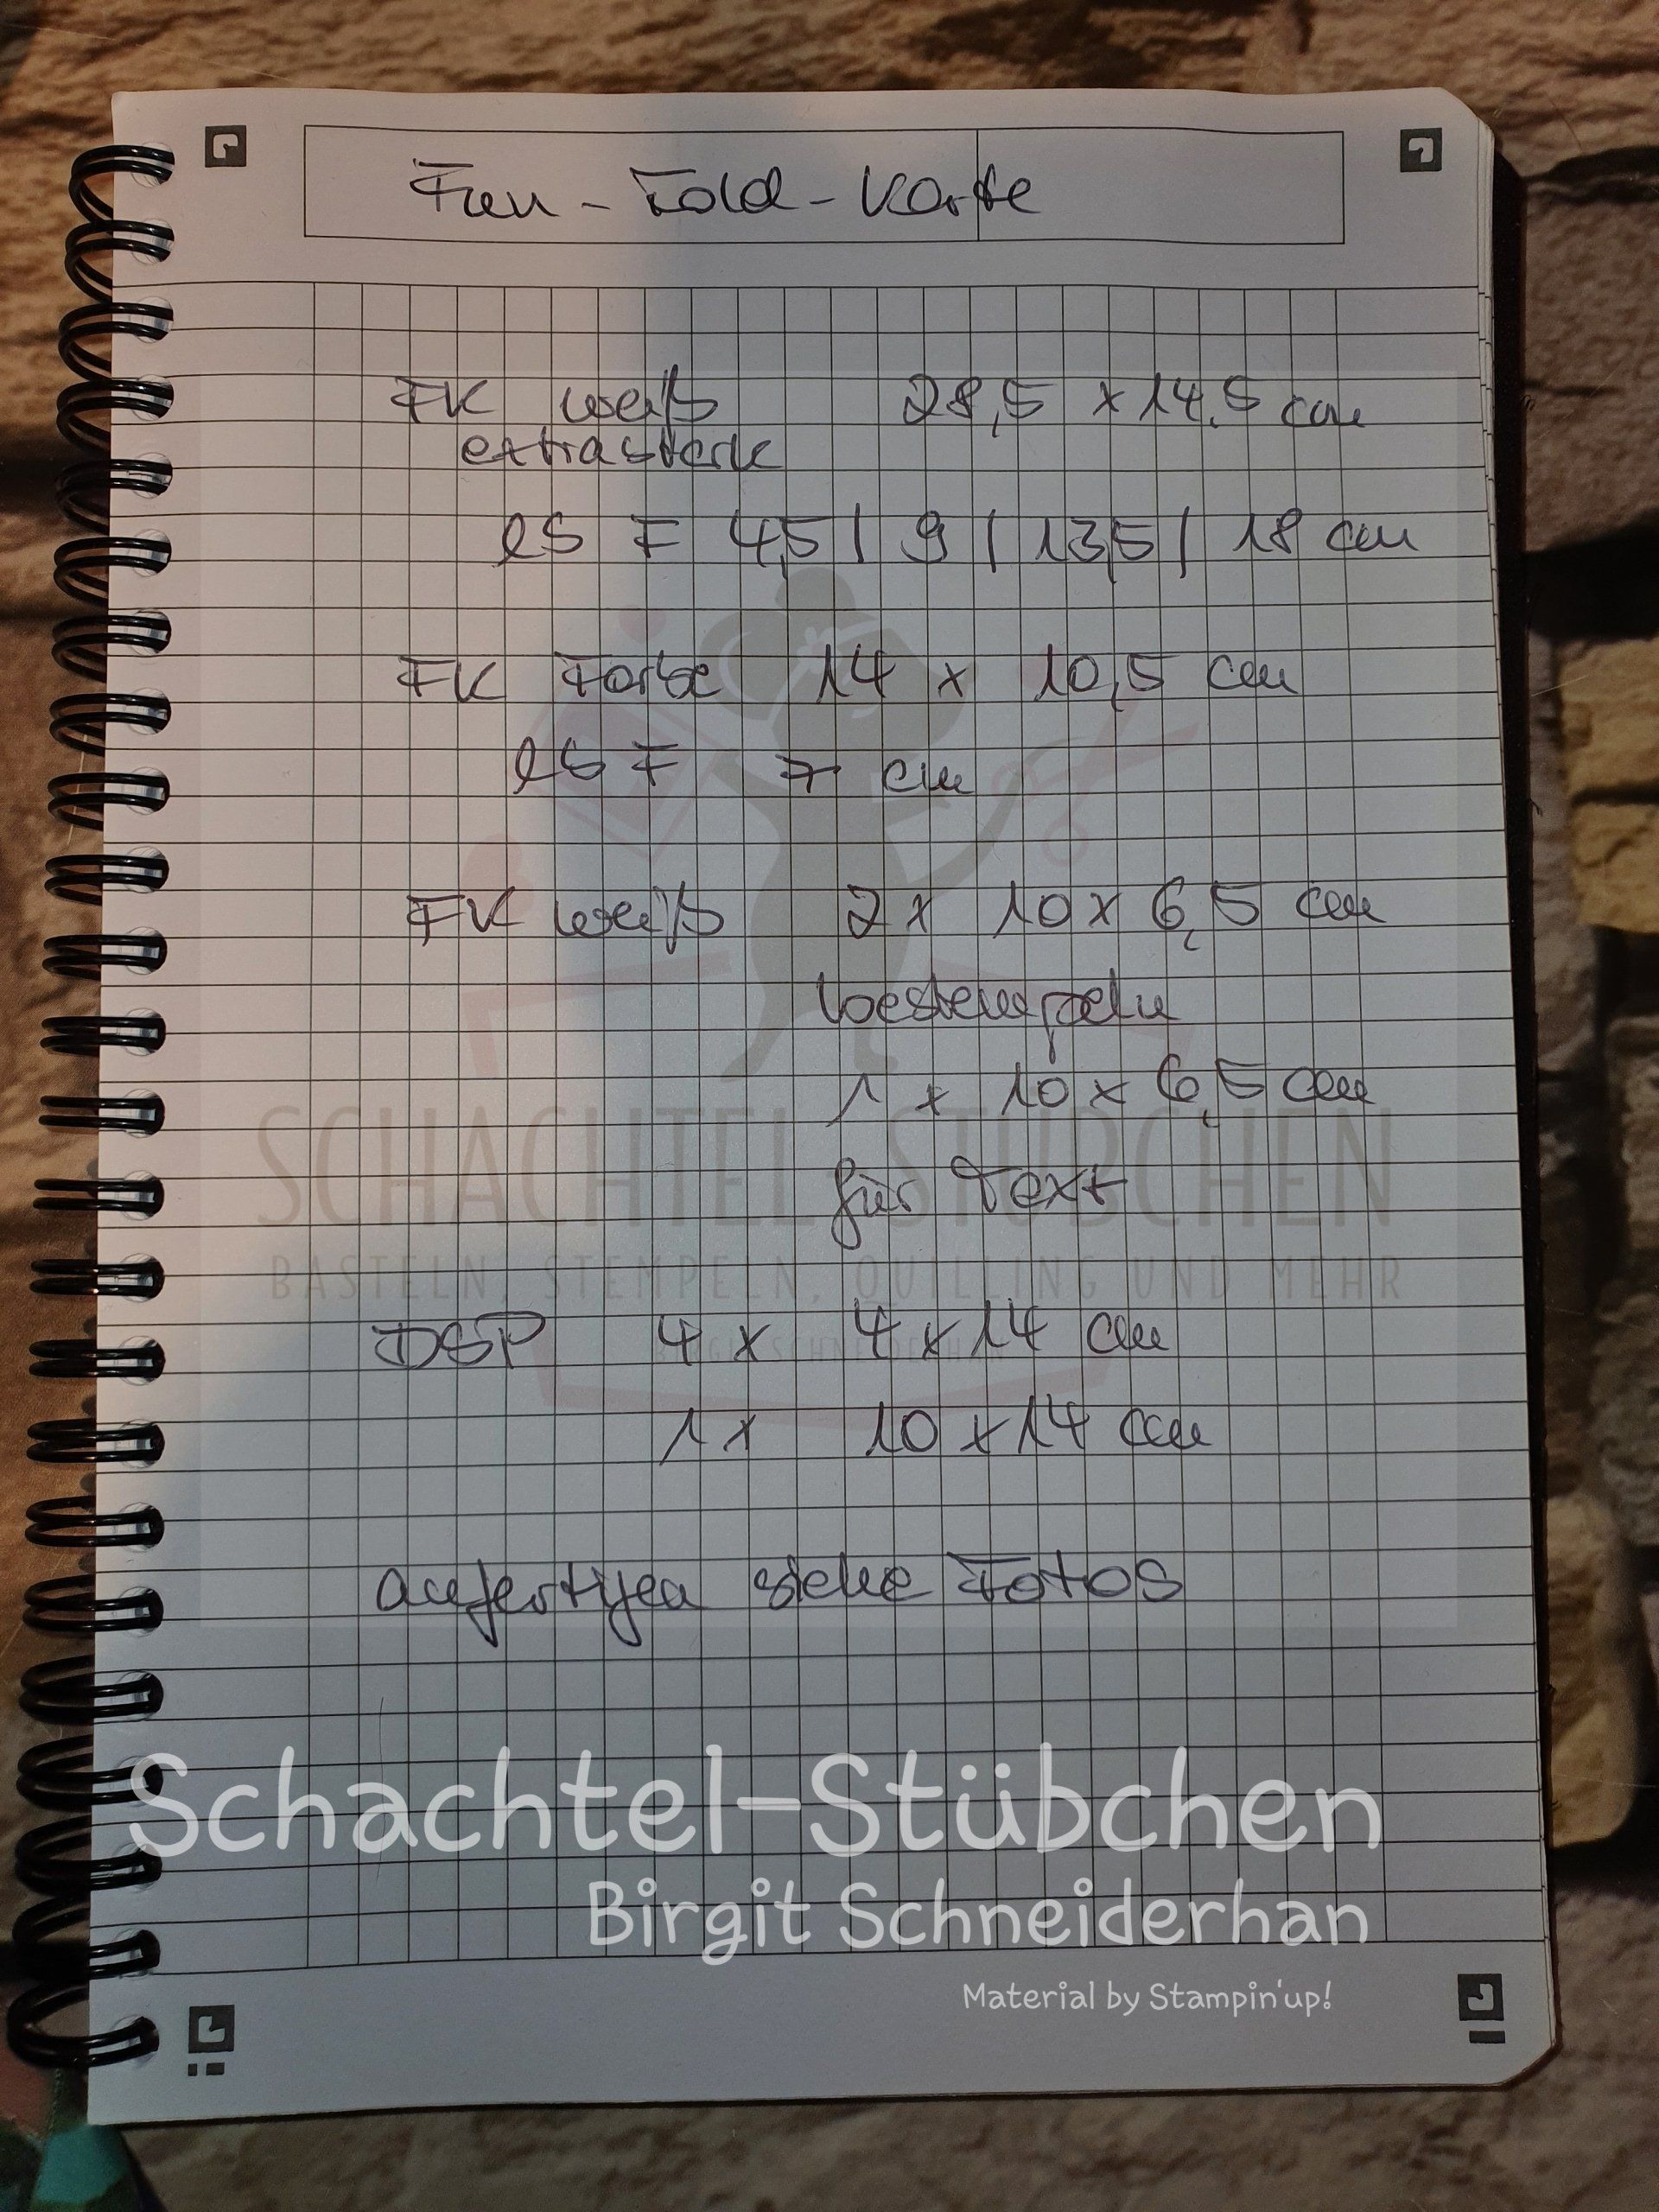 Fun-Fold-Karte
FK weiß 28,5 x 14,5 cm
extrastark
lS F 4,5 | 9 | 13,5 | 18 cm
FK Farbe 14 x 10,5 cm
lS F 7 cm
FK weiß 2 x 10 x 6,5 cm
bestempeln
1 x 10 x 6,5 cm
für Text
SCHACHTEL-STÜBCHEN
BASTELN, STEMPELN, QUILLING UND MEHR
DSP 4 x 4 x 14 cm
BIRGIT SCHNEIDERHAN
1 x 10 x 14 cm
anfertigen siehe Fotos
Schachtel-Stübchen
Birgit Schneiderhan
Material by Stampin'up!